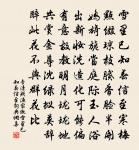 雪里已知春信至寒梅
點綴瓊枝膩香臉半開
嬌旖旎當庭際玉人浴
出新妝洗造化可能偏
有意故教明月玲瓏地
共賞金尊沈綠蟻莫辭
醉此花不與群花比
李清照漁家傲雪里已
知春信至